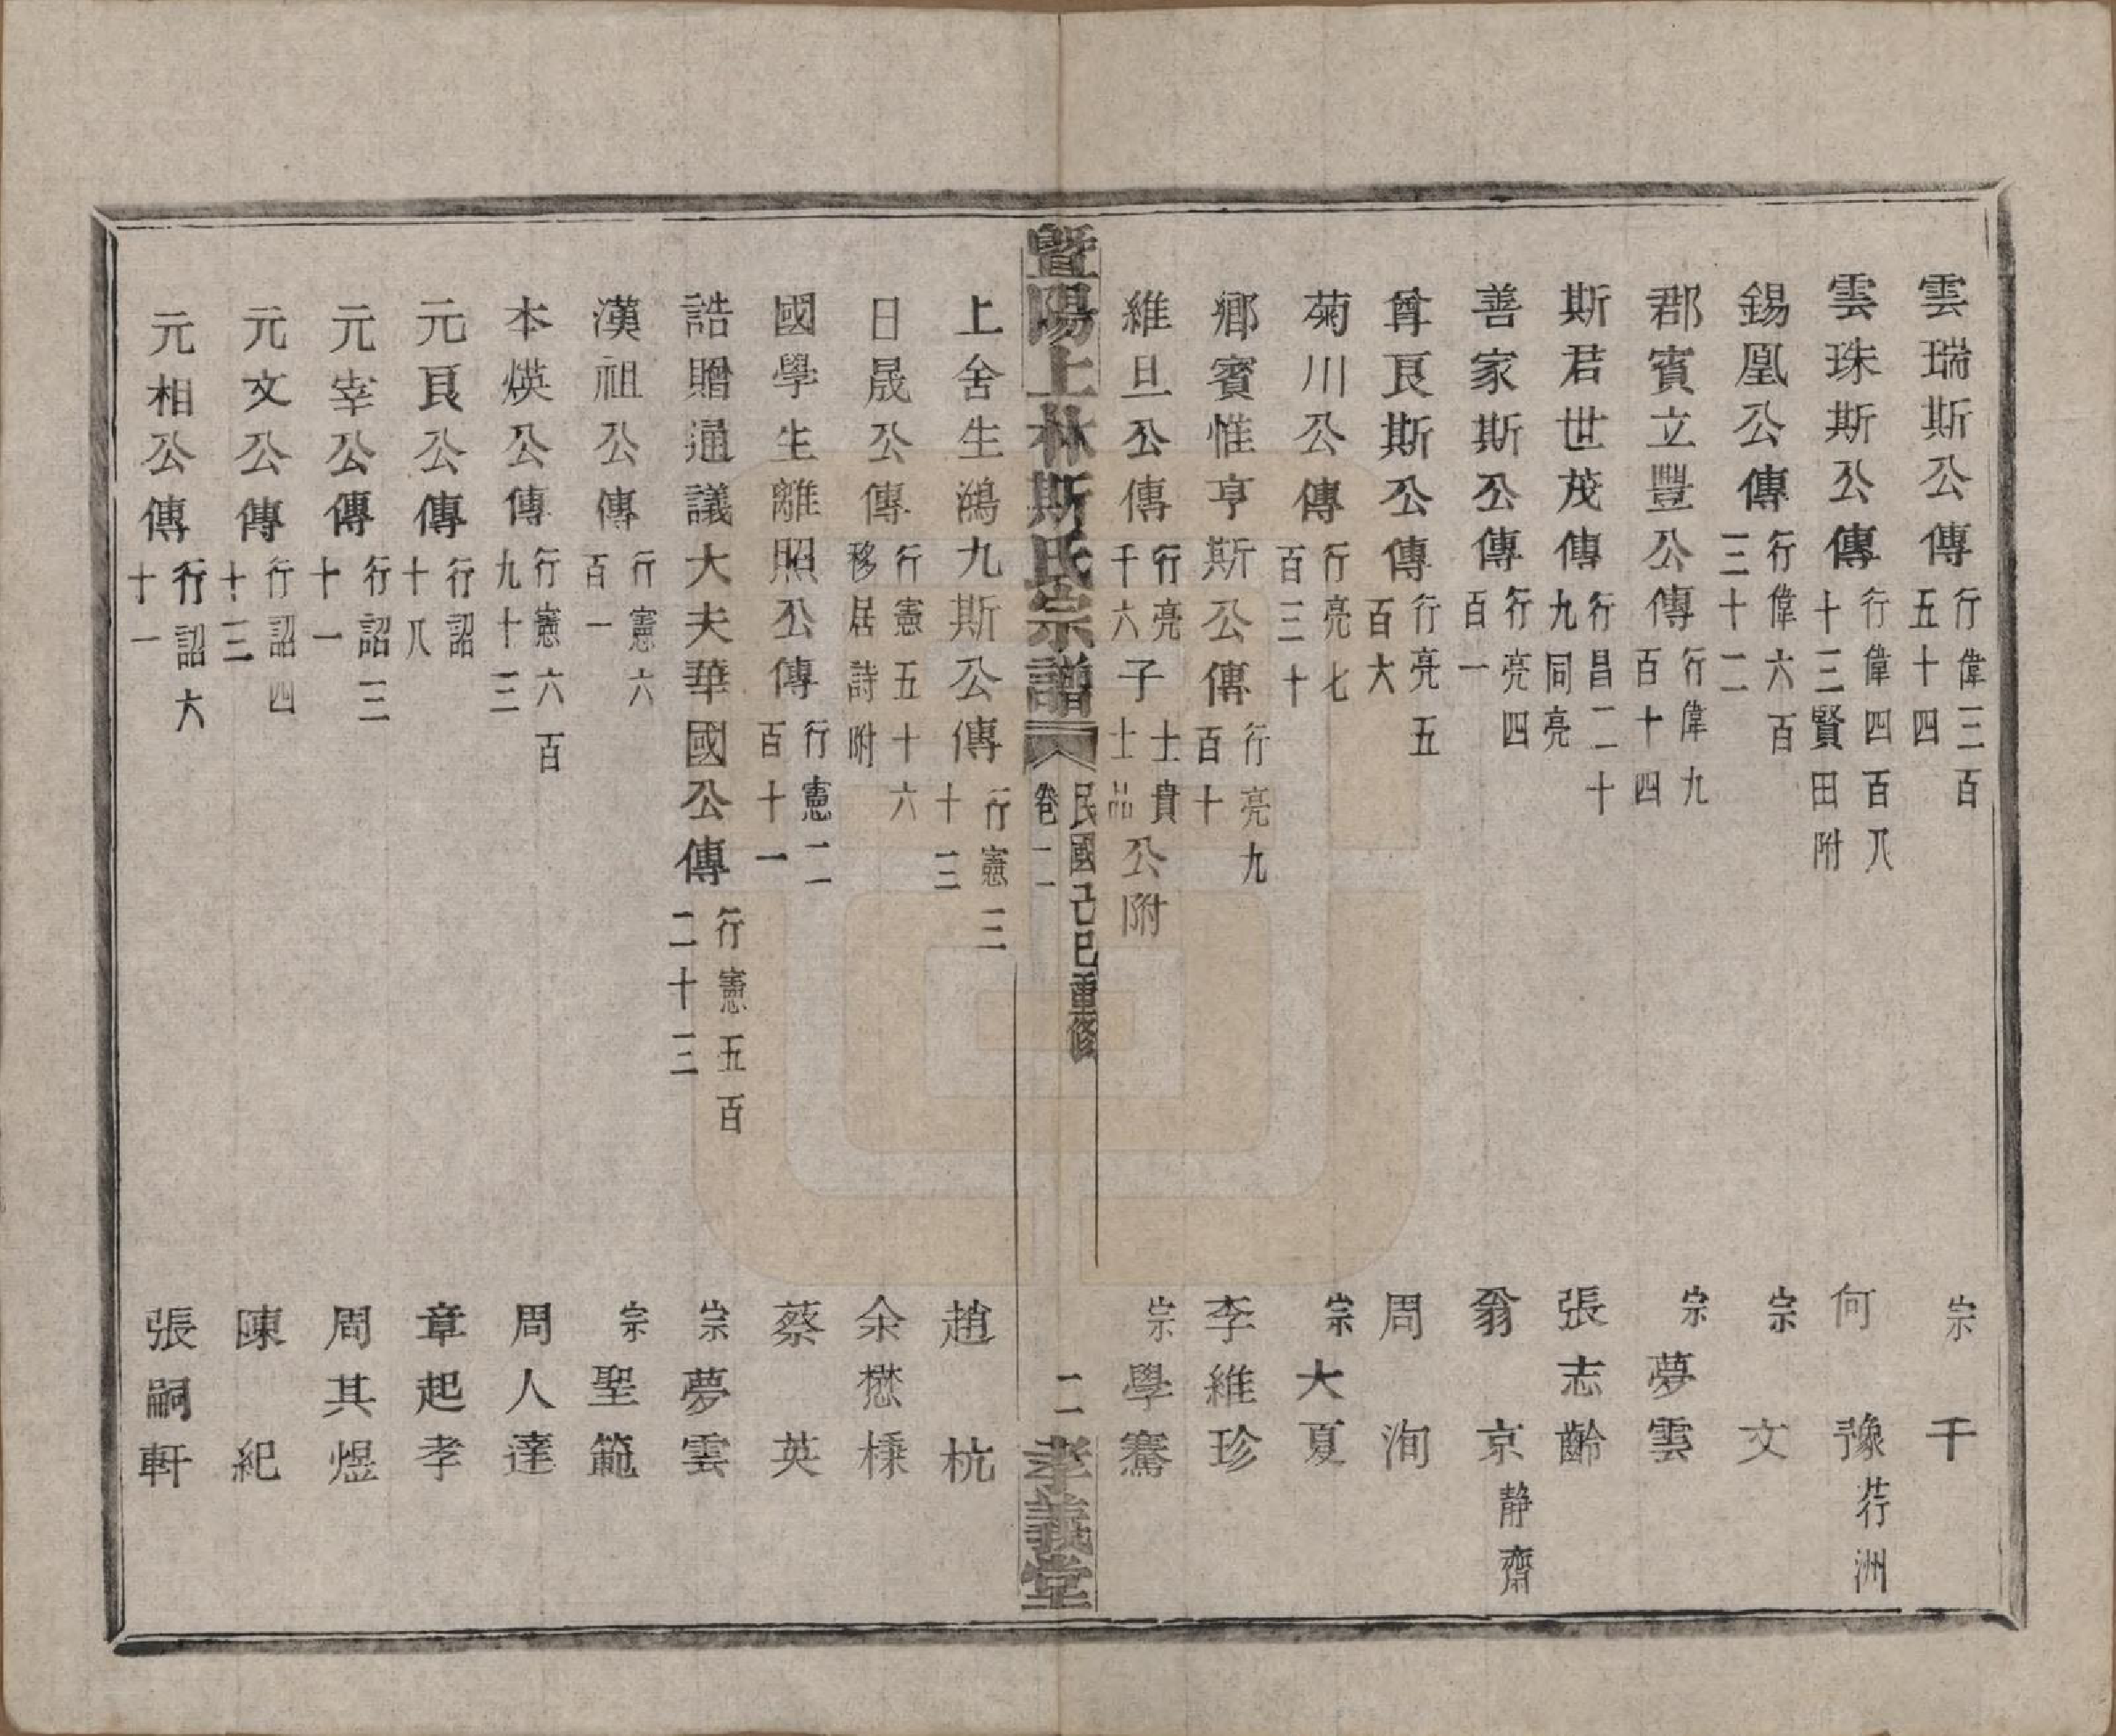 雲瑞斯公傳 行偉三百五十四 宗 干
雲珠斯公傳 行偉四百八十三賢田附 何 豫 荇洲
錫凰公傳 行偉六百三十二 宗 文
郡賓立豐公傳 行偉九百十四 宗夢雲
斯君世茂傳 行昌二十九同亮 張志齡
善家斯公傳 行亮四百一 翁 京 静齋
尊良斯公傳 行亮五百大 周 洵
菊川公傳 行亮七百三十 宗大夏
鄉賓惟亨斯公傳 行亮九百十 李維珍
維旦公傳 行亮千六 子 士貴士品 公附 宗學騫
暨陽上林斯氏宗譜 卷二 民國己巳重修 二 孝義堂
上舍生鴻九斯公傳 行憲三十三 趙 杭
日晟公傳 行憲五十六移居詩附 余懋棅
國學生離照公傳 行憲二百十一 蔡 英
誥贈通議大夫華國公傳 行憲五百二十三 宗夢雲
漢祖公傳 行憲六百一 宗聖範
本煐公傳 行憲六百九十三 周人達
元良公傳 行詔十八 章起孝
元宰公傳 行詔三十一 周其煜
元文公傳 行詔四十三 陳 紀
元相公傳 行詔大十一 張嗣軒